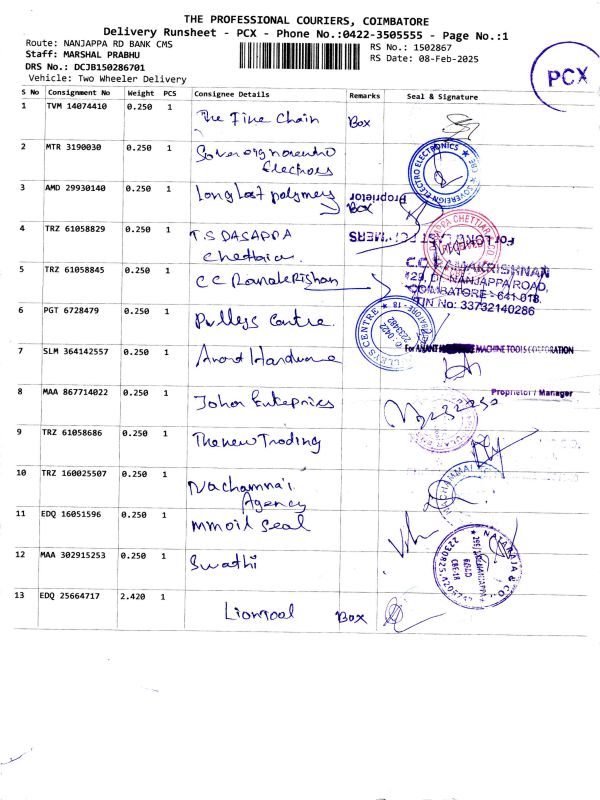 THE PROFESSIONAL COURIERS, COIMBATORE
Delivery Runsheet - PCX - Phone No.:0422-3505555 - Page No.:1
Route: NANJAPPA RD BANK CMS
RS No.: 1502867
Staff: MARSHAL PRABHU
RS Date: 08-Feb-2025
DRS No.: DCJB150286701
Vehicle: Two Wheeler Delivery
PCX
S No Consignment No Weight PCS Consignee Details Remarks Seal & Signature
1 TVM 14074410 0.250 1 The Fine Chain Box
2 MTR 3190030 0.250 1
SOVEREIGN ELECTRO ELECTRONICS ★ CBE ★
3 AMD 29930140 0.250 1 Long Last polymers Box
Proprietor
4 TRZ 61058829 0.250 1 T.S DASAPPA
Chettair
5 TRZ 61058845 0.250 1 C C Ramakrishan
C.C. RAMAKRISHNAN
NANJAPPA ROAD,
COIMBATORE - 641 018.
TIN No: 33732140286
6 PGT 6728479 0.250 1 Pulleys Centre
7 SLM 364142557 0.250 1 Anant Hardware
For ANANT MACHINE TOOLS CORPORATION
Proprietor / Manager
8 MAA 867714022 0.250 1
9 TRZ 61058686 0.250 1 The new Trading
10 TRZ 160025507 0.250 1 Nachammai
Agency
11 EDQ 16051596 0.250 1 mm oil seal
12 MAA 302915253 0.250 1 Swathi
NATARAJA & CO
13 EDQ 25664717 2.420 1 Box